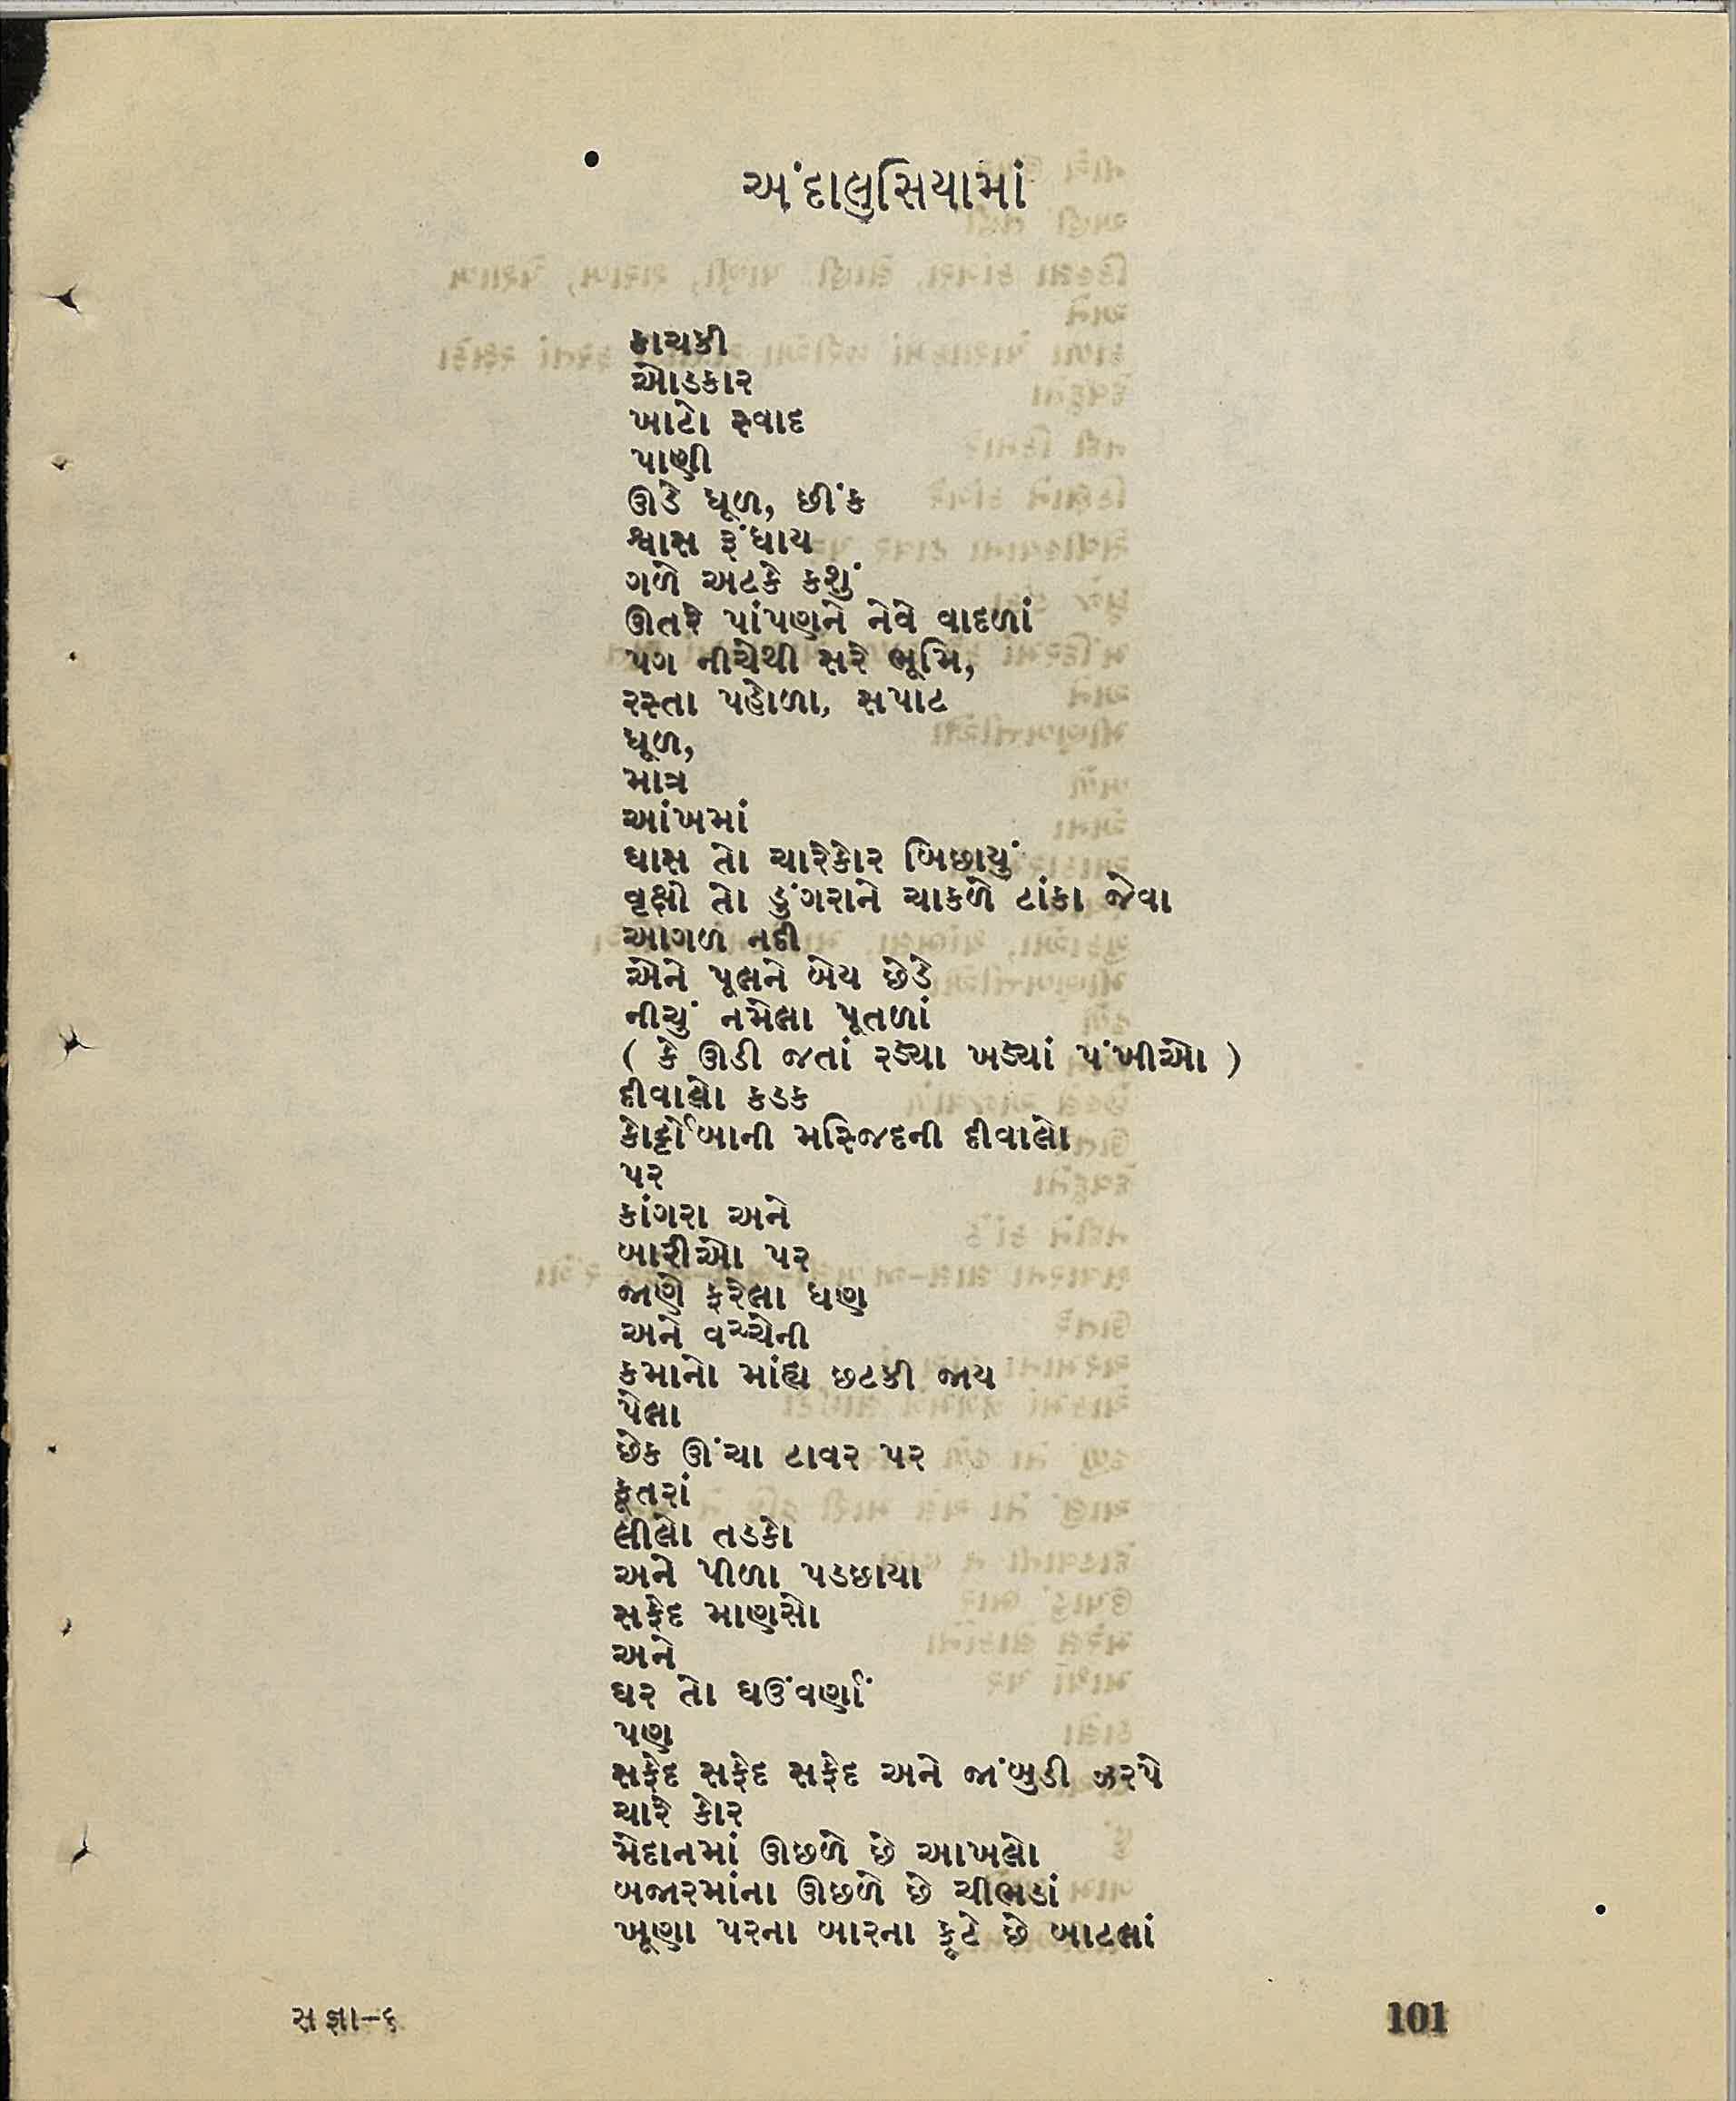 અંદાલુસિયામાં
કાચકી
ઓડકાર
ખાટો સ્વાદ
પાણી
ઊડે ધૂળ, છીંક
શ્વાસ રૂંધાય
ગળે અટકે કશું
ઊતરે પાંપણને નેવે વાદળાં
પગ નીચેથી સરે ભૂમિ,
રસ્તા પહોળા, સપાટ
ધૂળ,
માત્ર
આંખમાં
ઘાસ તો ચારેકોર બિછાયું
વૃક્ષો તો ડુંગરાને ચાકળે ટાંકા જેવા
આગળ નદી
એને પૂલને બેય છેડે
નીચું નમેલા પૂતળાં
( કે ઊડી જતાં રડ્યા ખડ્યાં પંખીઓ )
દીવાલો કડક
કોર્ડોબાની મસ્જિદની દીવાલો
પર
કાંગરા અને
બારીઓ પર
જાણે ફરેલા ધણ
અને વચ્ચેની
કમાનો માંહ્ય છટકી જાય
પેલા
છેક ઊંચા ટાવર પર
કૂતરાં
લીલો તડકો
અને પીળા પડછાયા
સફેદ માણસો
અને
ઘર તો ઘઉંવર્ણાં
પણ
સફેદ સફેદ સફેદ અને જાંબુડી ઝરપે
ચારે કોર
મેદાનમાં ઊછળે છે આખલો
બજારમાંના ઊછળે છે ચીભડાં
ખૂણા પરના બારના ફૂટે છે બાટલાં
સંજ્ઞા-૬
101